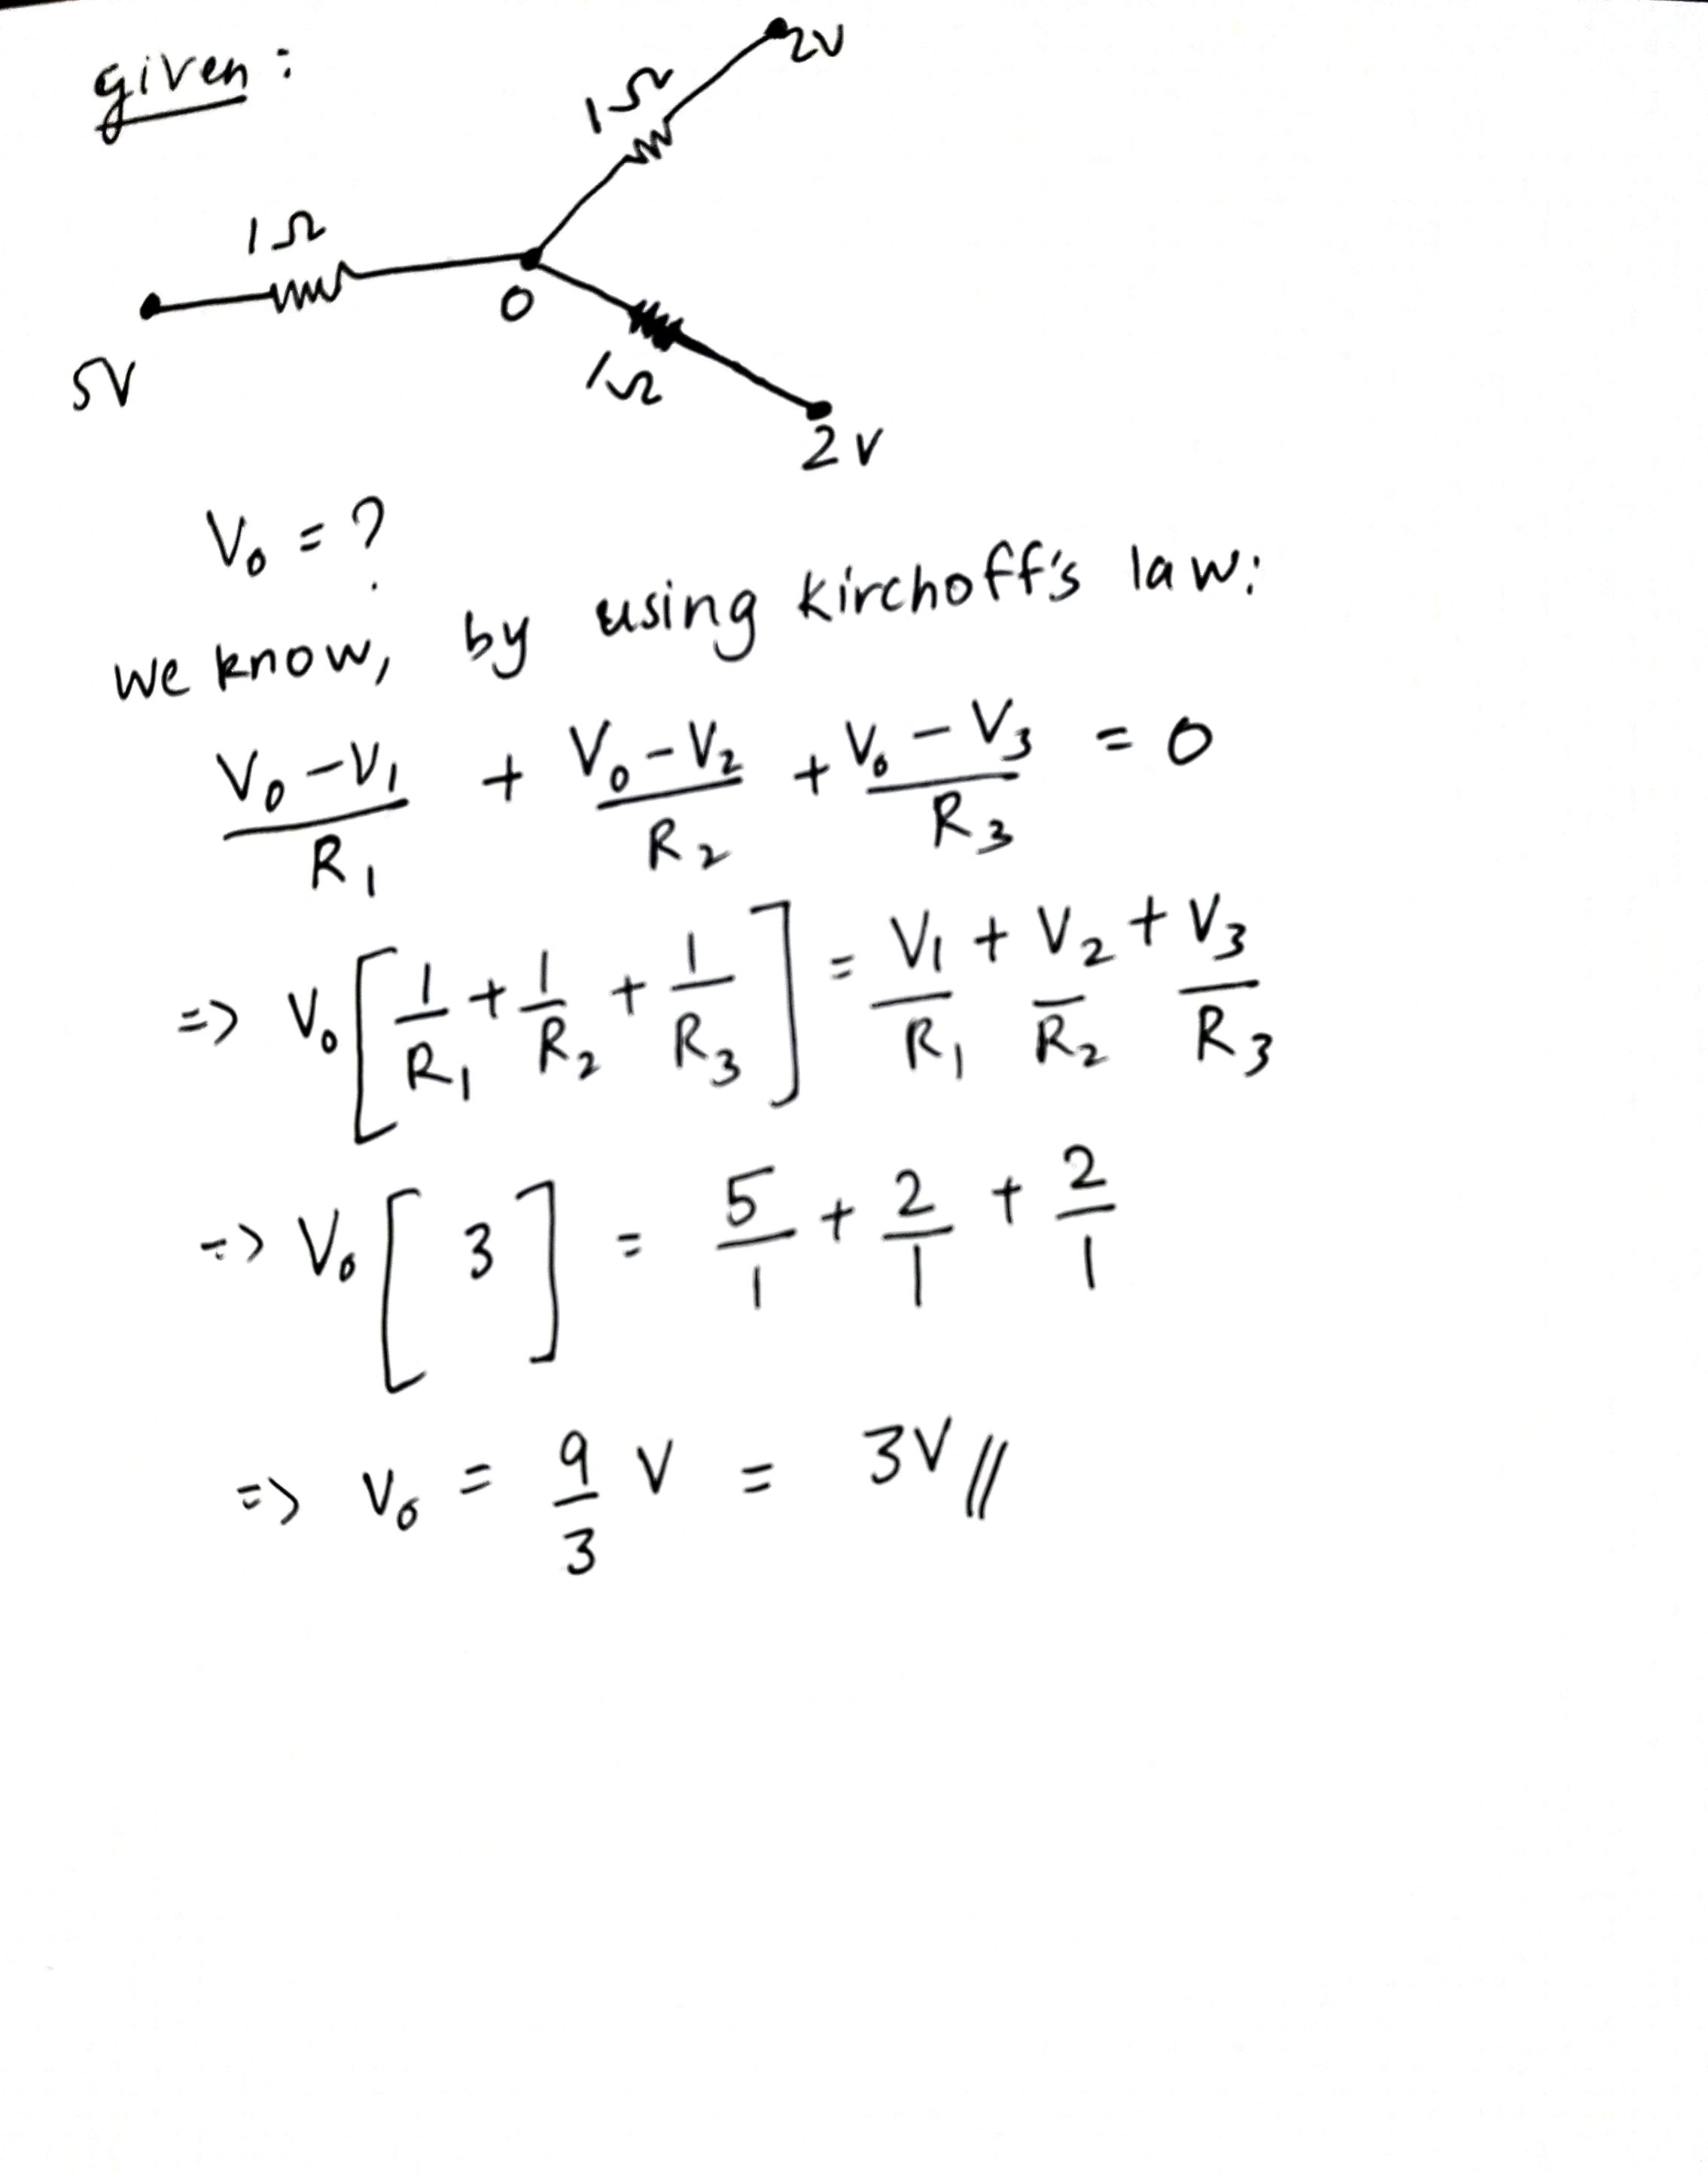 given :
2V
1Ω
1Ω
O
5V
1Ω
2V
V₀ = ?
we know, by using kirchoff's law:
(V₀ - V₁)/R₁ + (V₀ - V₂)/R₂ + (V₀ - V₃)/R₃ = 0
=> V₀ [1/R₁ + 1/R₂ + 1/R₃] = V₁/R₁ + V₂/R₂ + V₃/R₃
=> V₀ [3] = 5/1 + 2/1 + 2/1
=> V₀ = 9/3 V = 3V //